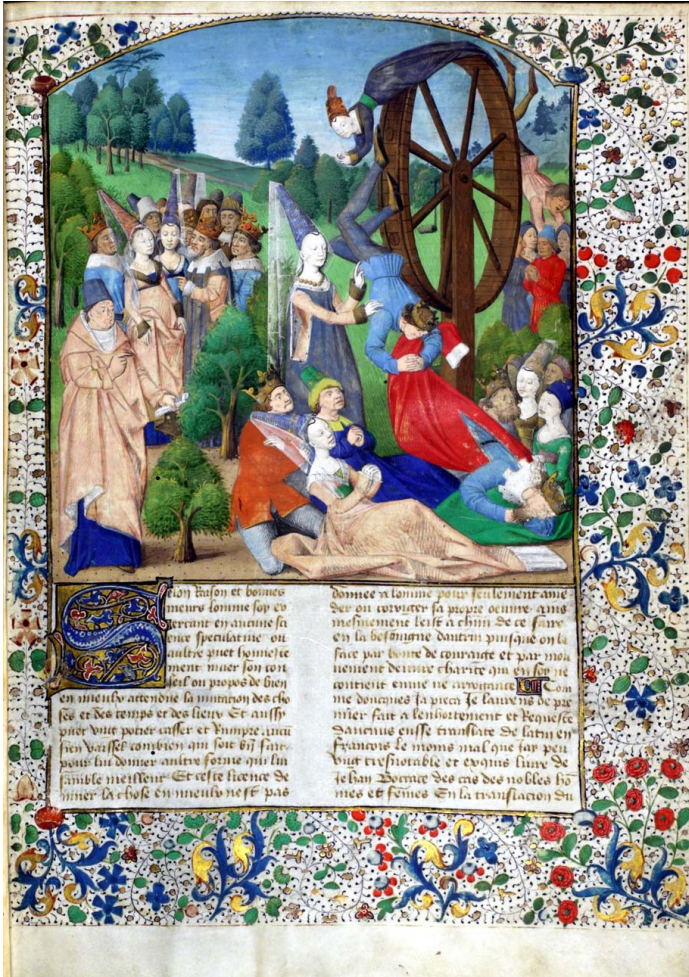 Selon Raison et bonnes
meurs lomme soy ex
cercant en aucune sci
ence speculative ou
aultre puet honneste
ment muer son con
seil ou propos de bien
en mieulx attendue la mutation des cho
ses et des temps et des lieux Et aussy
puet vng potier casser et Rompre aucū
sien vaissel combien quil soit bn̄ fait
pour lui donner aultre forme qui lui
samble meilleur Et ceste licence de
muer la chose en mieulx nest pas
donnee a lomme pour seulement amē
der ou corrigier sa propre oeuure ains
mesmement leist a chūn de ce faire
en la besoingne daultrui puisque on la
face par bonte de couraige et par mou
uement de vraie charite qui en soy ne
contient enuie ne arrogance Com
me doncques Ja pieca Je laurens de pre
mier fait a lenhortement et Requeste
daucuns eusse translate de latin en
francois le moins mal que jay peu
vng tresnotable et exquis liure de
Jehan Boccace des cas des nobles hō
mes et fēmes En la translation du